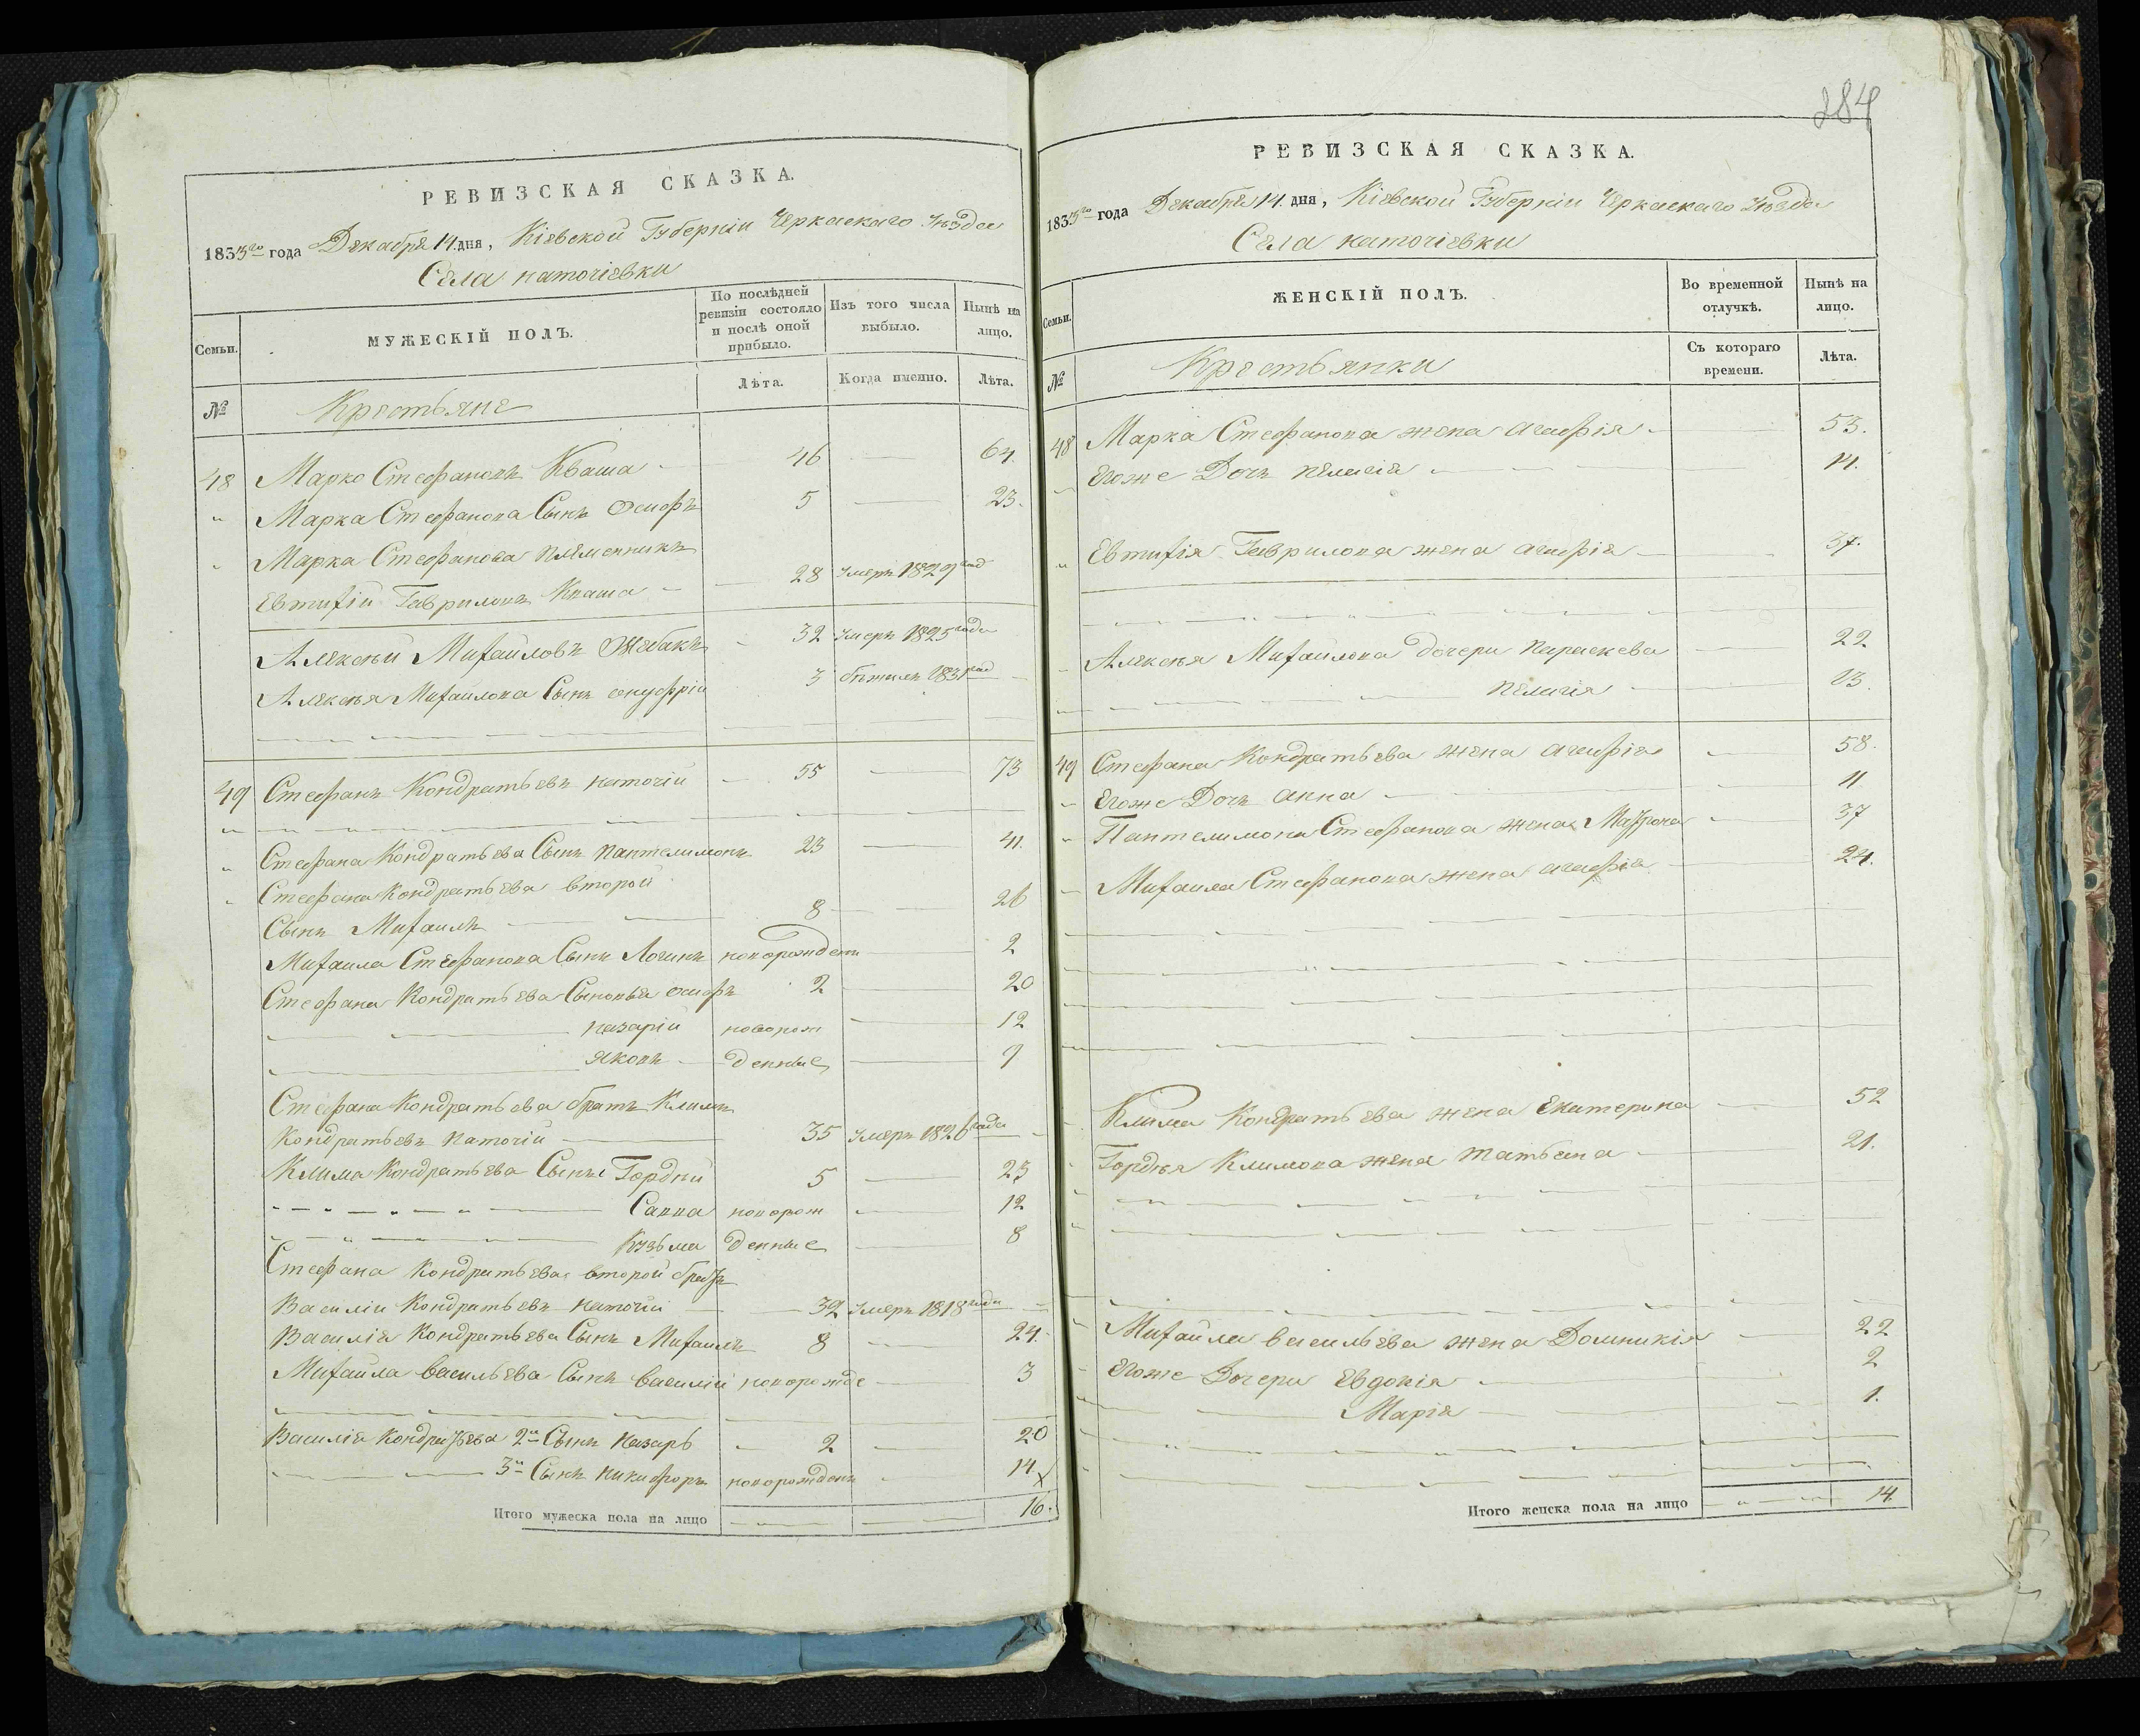 284
РЕВИЗСКАЯ СКАЗКА.
1835го года Декабря 14. дня, Кіевской Губерніи Черкаскаго Уѣзда
Села наточіевки
Семьи.
МУЖЕСКІЙ ПОЛЪ.
По послѣдней ревизіи состояло и послѣ оной прибыло.
Изъ того числа выбыло.
Нынѣ на лицо.
№
Крестьяне
Лѣта.
Когда именно.
Лѣта.
48 Марко Стефановъ Кваша 46 64.
Марка Стефанова Сынъ Осифъ 5 23.
Марка Стефанова племенникъ
Евтихій Гавриловъ Кваша 28 умеръ 1829 год
Алексѣй Михайловъ 32 умеръ 1825 года
Алексѣя Михайлова Сынъ онуфрій 3 бѣжилъ 1831 год
49 Стефанъ Кондратьевъ наточій 55 73
Стефана Кондратьева Сынъ пантелимонъ 23 41.
Стефана Кондратьева второй
Сынъ Михаилъ 8 26
Михаила Стефанова Сынъ Логинъ новорожденъ 2
Стефана Кондратьева Сыновья осифъ 2 20
назарій новорож 12
яковъ денные 9
Стефана Кондратьева братъ Климъ
Кондратьевъ наточій 35 умеръ 1826 года
Клима Кондратьева Сынъ Гордѣй 5 23
Савва новорож 12
Кузьма денные 8
Стефана Кондратьева второй братъ
Василій Кондратьевъ наточій 32 умеръ 1818 года
Василія Кондратьева Сынъ Михаилъ 8 24.
Михайла Васильева Сынъ василій новорожде 3
Василія Кондратьева 2й Сынъ назарь 2 20
3й Сынъ никифоръ новорожденъ 14
Итого мужеска пола на лицо 16.
РЕВИЗСКАЯ СКАЗКА.
1835го года Декабря 14. дня, Кіевской Губерніи Черкаскаго Уѣзда
Села наточіевки
Семьи.
ЖЕНСКІЙ ПОЛЪ.
Во временной отлучкѣ.
Нынѣ на лицо.
№
Крестьянки
Съ котораго времени.
Лѣта.
48 Марка Стефанова жена агафія 53.
Егоже Дочь пелагія 14.
Евтихія Гаврилова жена агафія 37.
Алексѣя Михайлова дочери параскева 22
пелагія 13.
49 Стефана Кондратьева жена агафія 58.
Егоже Дочь анна 11
Пантелимона Стефанова жена Матрона 37
Михаила Стефанова жена агафія 24.
Клима Кондратьева жена Екатерина 52
Гордѣя Климова жена татьяна 21.
Михайла васильева жена Домникія 22
Егоже Дочери Евдокія 2
Марія 1.
Итого женска пола на лицо 14.